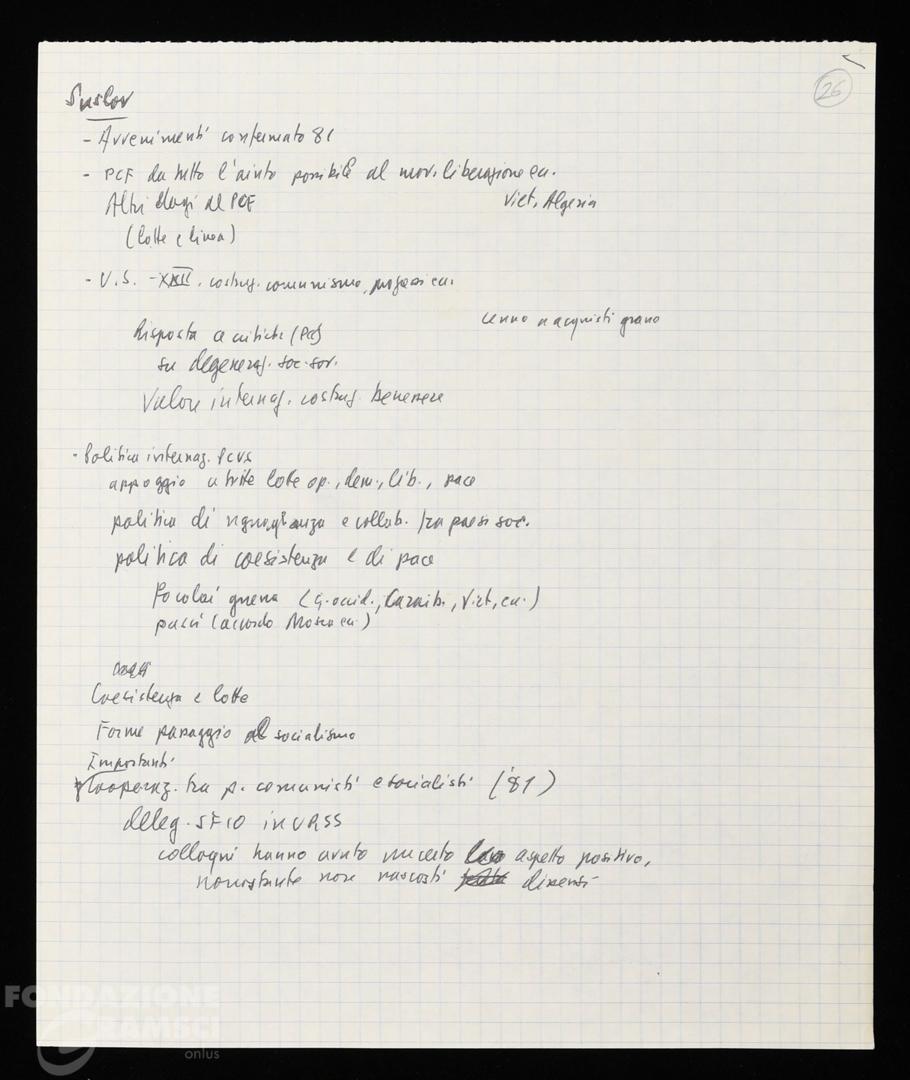 26
Suslov
- Avvenimenti confermato 81
- PCF da tutto l'aiuto possibile al mov. liberazione ecc.
Viet, Algeria
Altri elogi al PCF
(lotte e linea)
- U.S. - XXII. costruz. comunismo, ecc.
cenno a acquisti grano
Risposta a critiche (PCC)
su degeneraz. soc. sov.
Valore internaz. costruz. benessere
- Politica internaz. PCUS
appoggio a tutte lotte op., dem., lib., pace
politica di uguaglianza e collab. tra paesi soc.
politica di coesistenza e di pace
Focolai guerra (G. occid., Caraib., Viet, ecc.)
passi (accordo Mosca ecc.)
Coesistenza e lotte
Forme passaggio al socialismo
Importanti
Cooperaz. tra p. comunisti e socialisti ('81)
deleg. SFIO in URSS
colloqui hanno avuto un certo aspetto positivo,
nonostante non nascosti dissensi
FONDAZIONE
GRAMSCI
onlus